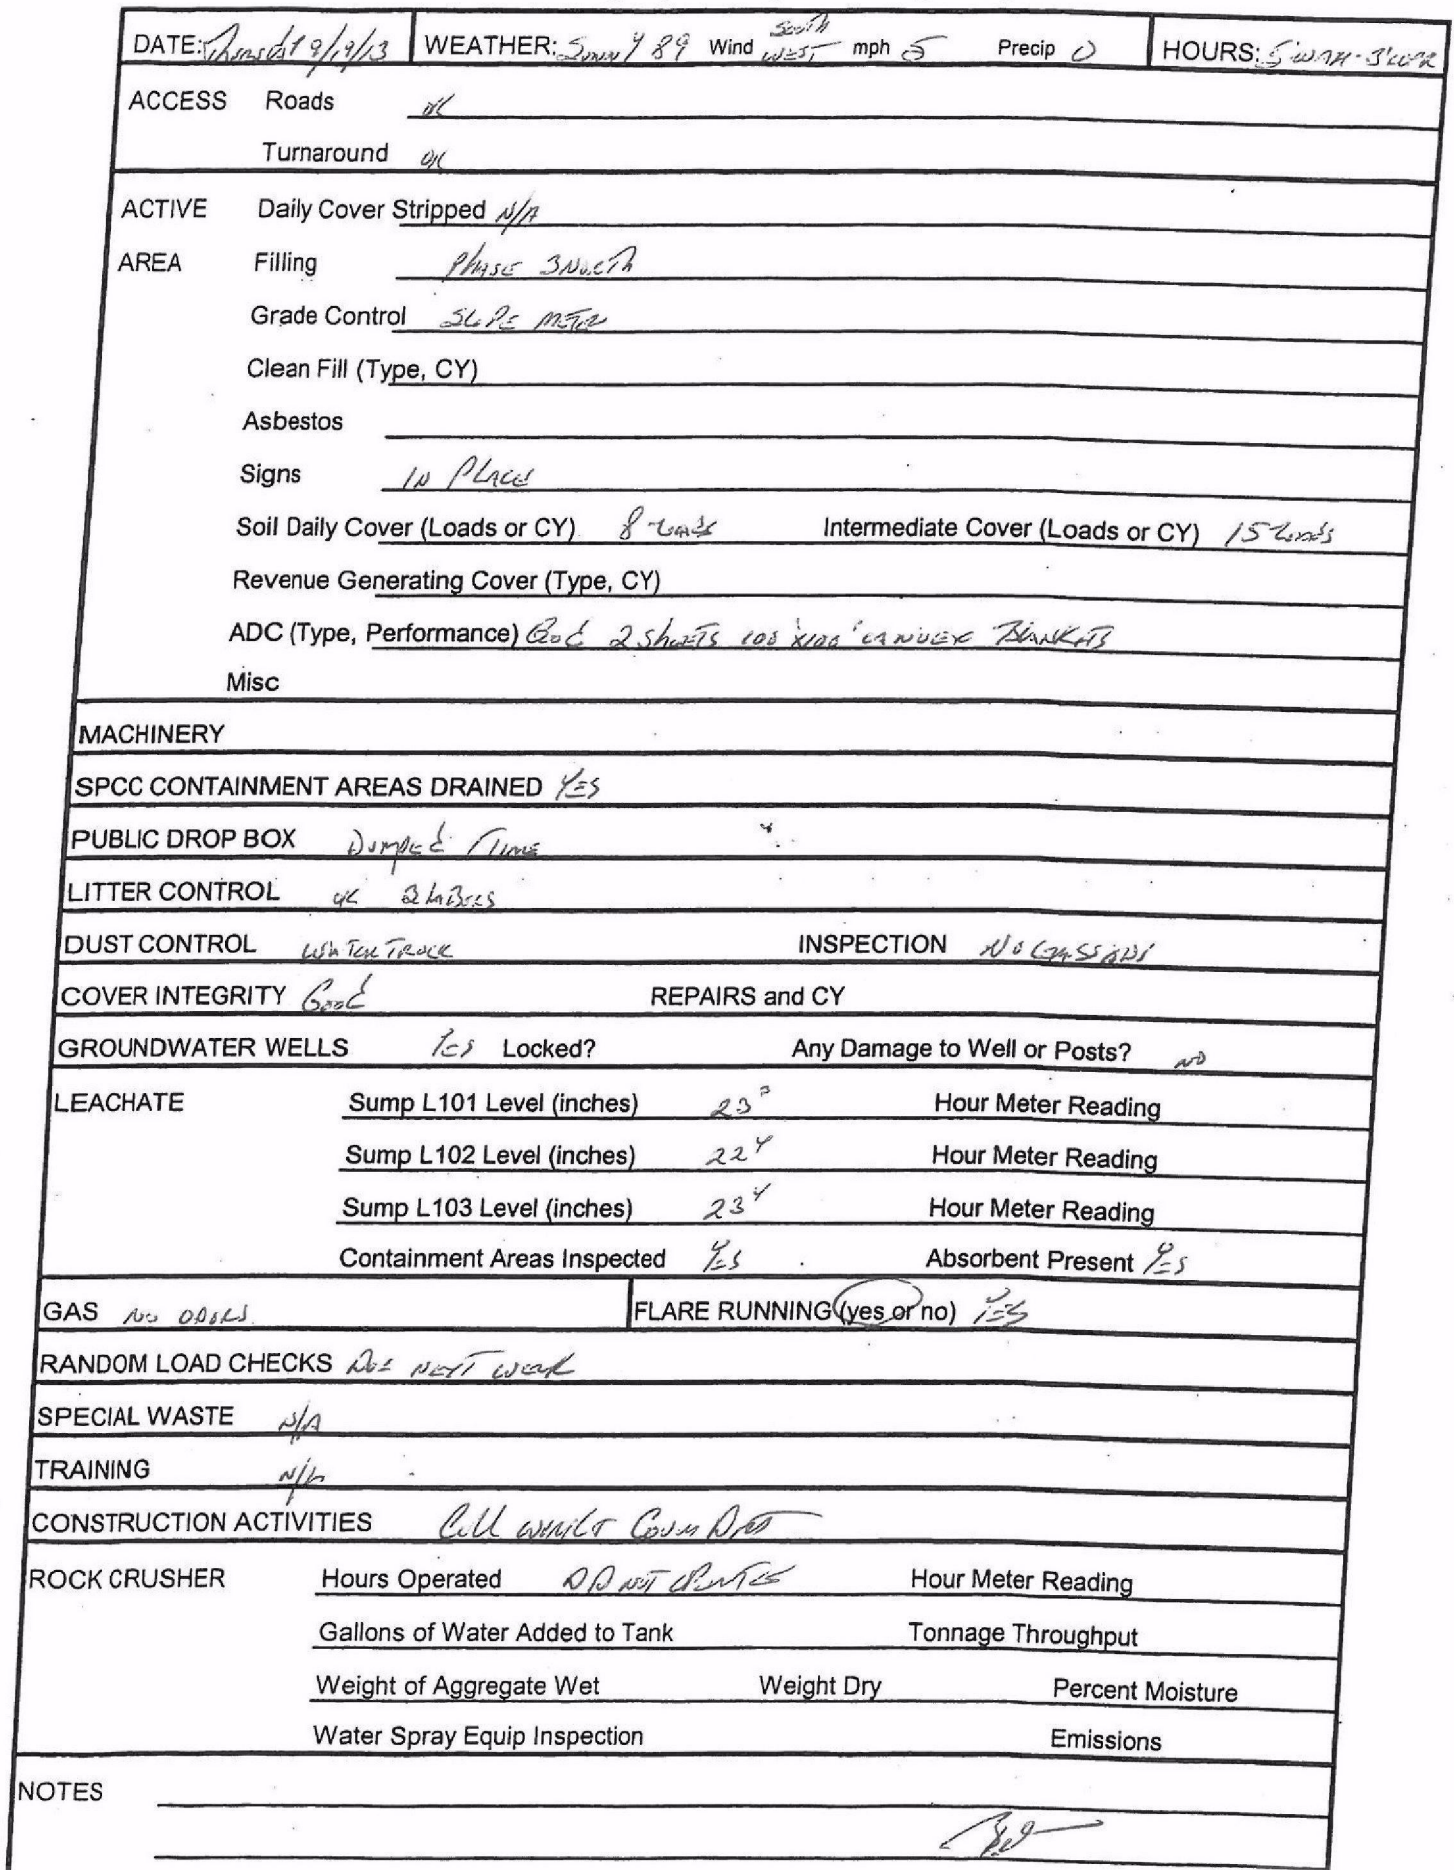 DATE: Thursday 9/19/13 WEATHER: Sunny 89 Wind South WEST mph 5 Precip 0 HOURS:
ACCESS Roads OK
Turnaround OK
ACTIVE Daily Cover Stripped N/A
AREA Filling PHASE 3 North
Grade Control SLOPE METER
Clean Fill (Type, CY)
Asbestos
Signs IN PLACE
Soil Daily Cover (Loads or CY) 8 Loads Intermediate Cover (Loads or CY) 15 Loads
Revenue Generating Cover (Type, CY)
ADC (Type, Performance) Good 2 Sheets 100'x100' BLANKETS
Misc
MACHINERY
SPCC CONTAINMENT AREAS DRAINED YES
PUBLIC DROP BOX Dumped 1 TIME
LITTER CONTROL OK 2 LABORS
DUST CONTROL WATER TRUCK INSPECTION NO EMISSIONS
COVER INTEGRITY Good REPAIRS and CY
GROUNDWATER WELLS YES Locked? Any Damage to Well or Posts? NO
LEACHATE Sump L101 Level (inches) 23 Hour Meter Reading
Sump L102 Level (inches) 22 4 Hour Meter Reading
Sump L103 Level (inches) 23 4 Hour Meter Reading
Containment Areas Inspected YES Absorbent Present YES
GAS NO ODORS FLARE RUNNING (yes or no) YES
RANDOM LOAD CHECKS Due NEXT WEEK
SPECIAL WASTE N/A
TRAINING N/A
CONSTRUCTION ACTIVITIES Cell
ROCK CRUSHER Hours Operated DID NOT OPERATE Hour Meter Reading
Gallons of Water Added to Tank Tonnage Throughput
Weight of Aggregate Wet Weight Dry Percent Moisture
Water Spray Equip Inspection Emissions
NOTES